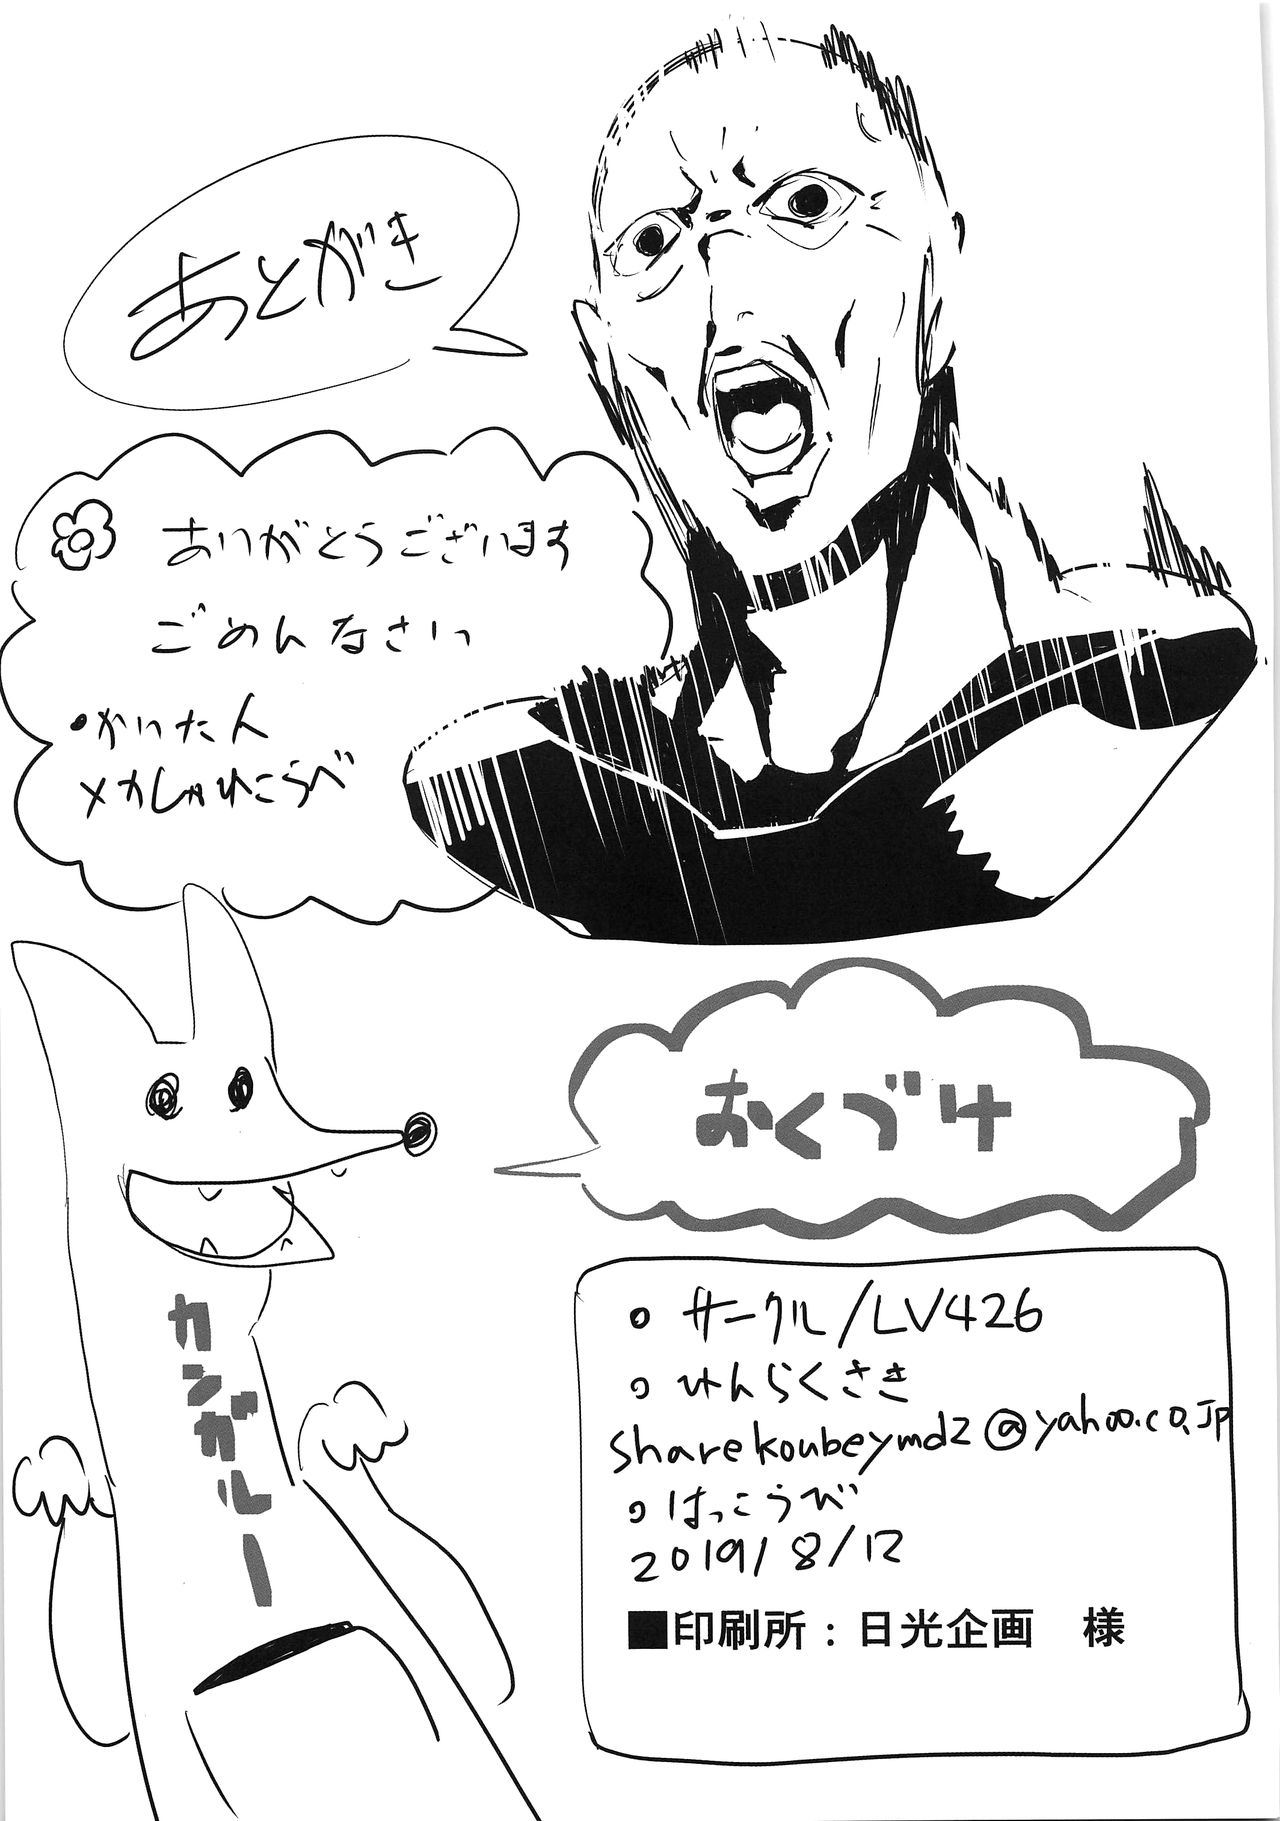 あとがき
ありがとうございます
ごめんなさい
・かいた人
メカしゃれこうべ
おくづけ
カンガルー
・サークル/LV426
・れんらくさき
sharekoubeymd2@yahoo.co.jp
・はっこうび
2019/8/12
■印刷所：日光企画　様